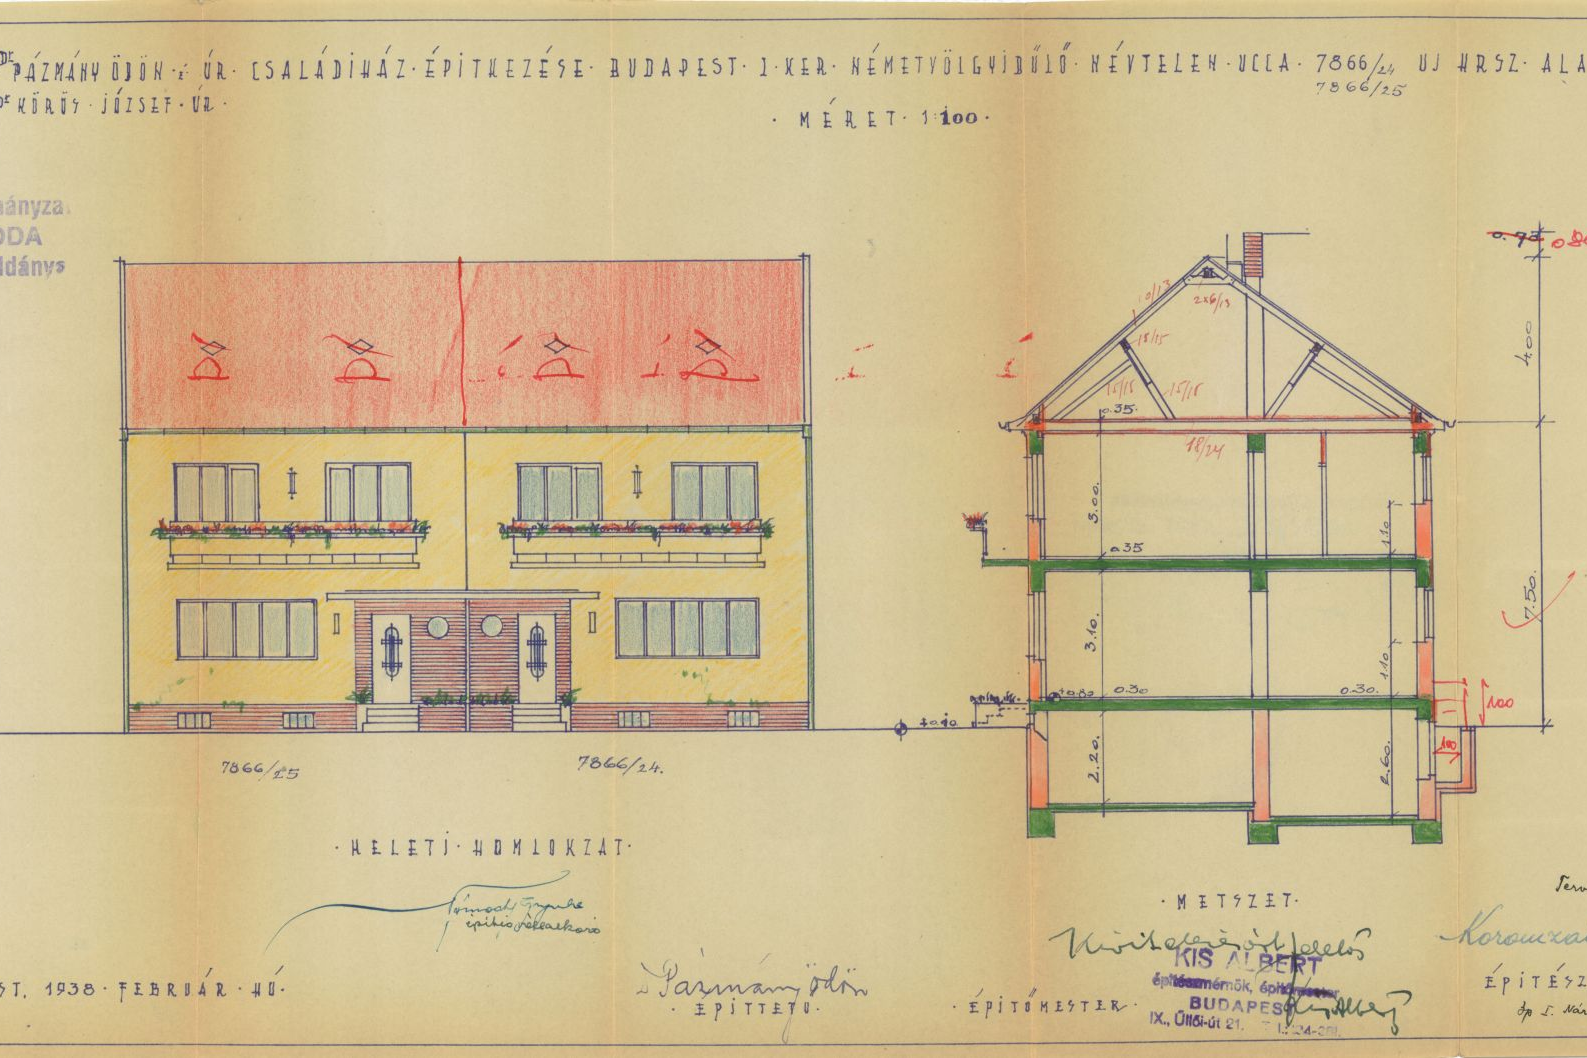 Dr PÁZMÁNY ÖDÖN É ÚR · CSALÁDIHÁZ · ÉPITKEZÉSE · BUDAPEST · I · KER · NÉMETVÖLGYIDŰLŐ · NÉVTELEN · UCCA · 7866/24 UJ HRSZ · ALA
Dr KÖRÖS · JÓZSEF · ÚR ·
7866/25
· MÉRET · 1:100 ·
ányza
ODA
ldánys
0.73
10/13
2x6/13
15/15
15/15
15/15
4.00
0.35
18/24
3.00
1.10
0.35
7.50
3.10
1.10
+0.80
0.30
0.30
100
100
2.20
2.60
7866/25
7866/24.
· KELETI · HOMLOKZAT ·
· METSZET ·
Terv
Kivitelezésért felelős
KIS ALBERT
építészmérnök, építőmester
BUDAPEST
IX., Üllői-út 21.
Kis Albert
ST, 1938 · FEBRUÁR · HÚ ·
Dr Pázmány Ödön
· ÉPITTETŐ ·
· ÉPITŐMESTER ·
ÉPITÉSZ